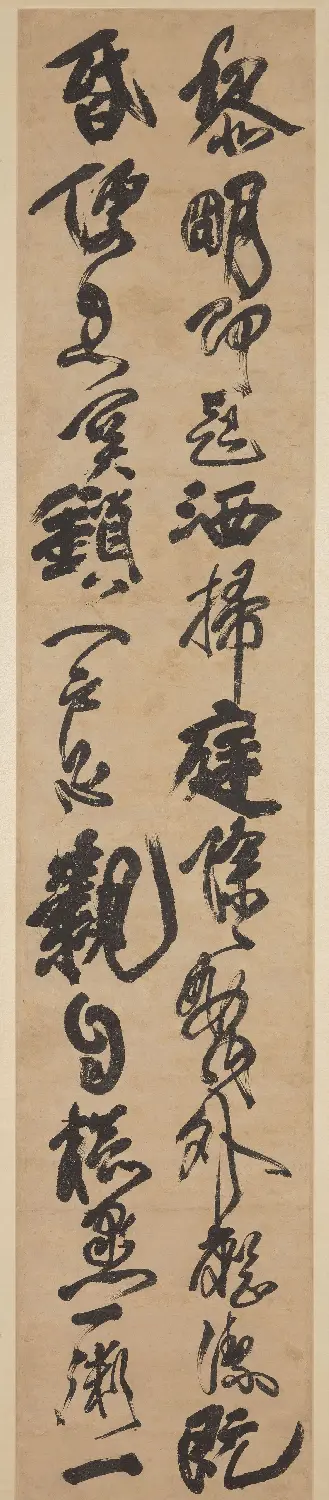 黎明即起洒掃庭除要内外整潔既
昏便息關鎖門户必親自檢點一粥一